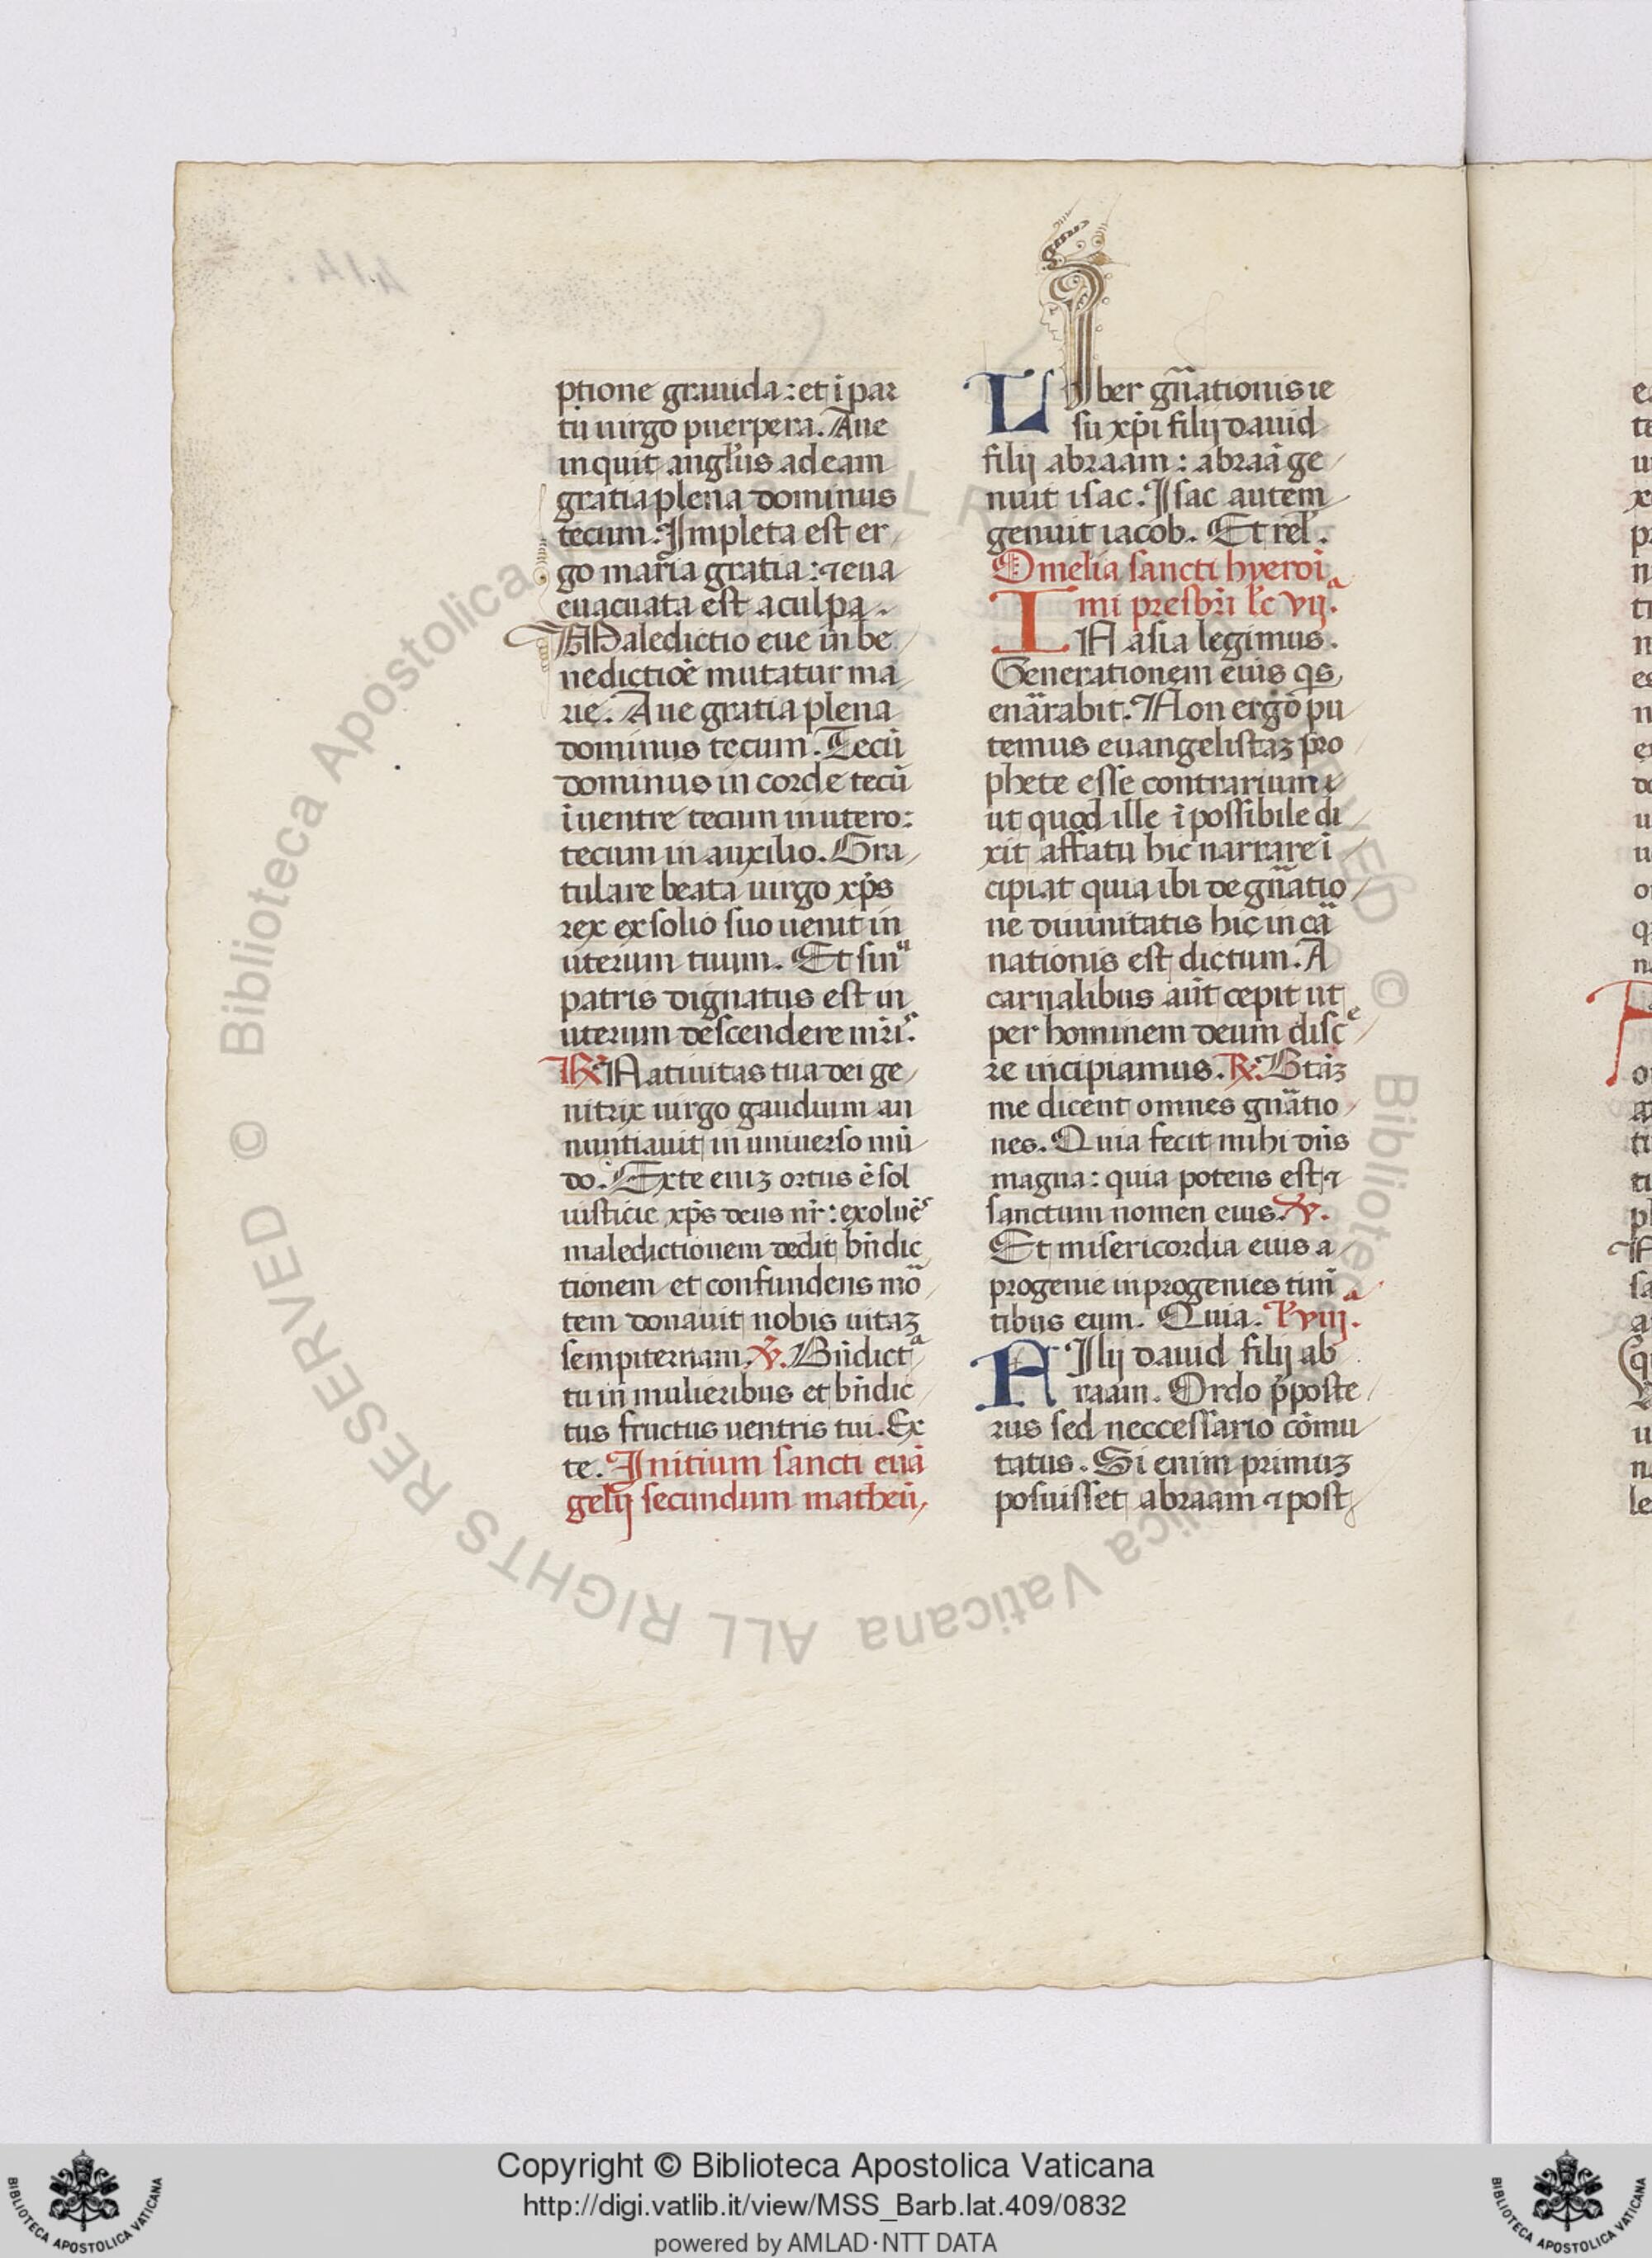 ptione grauida: et ī par
tū uirgo puerpera. Aue
inquit angľus ad eam
gratia plena dominus
tecum. Impleta est er
go maria gratia: ⁊ eua
euacuata est a culpa.
Maledictio eue in be
nedictiōē mutatur ma
rie. Aue gratia plena
dominus tecum. Tecū
dominus in corde tecū
ī uentre tecum in utero:
tecum in auxilio. Gra
tulare beata uirgo xp̄s
rex ex solio suo uenit in
uterum tuum. Et sinu
patris dignatus est in
uterum descendere mr̄is.
R̷. Natiuitas tua dei ge
nitrix uirgo gaudium an
nuntiauit in uniuerso mū
do. Ex te eniꝫ ortus ē sol
iusticie xp̄s deus nr̄: ex soluēs
maledictionem dedit bn̄dic
tionem et confundens mō
tem donauit nobis uitaꝫ
sempiternam. V̷. Bn̄dicta
tu in mulieribus et bn̄dic
tus fructus uentris tui. Ex
te. Initium sancti euā
gelij secundum matheū,
Liber gn̄ationis ie
su xp̄i filij dauid
filij abraam: abraā ge
nuit isac. Isac autem
genuit iacob. Et rel̄.
Omelia sancti hyeroī
mi presbr̄i lc̄ vijᵃ.
IN asia legimus.
Generationem eius qs̄
enārabit. Non ergo pu
temus euangelistaꝫ pro
phete esse contrarium:
ut quod ille ī possibile di
xit affatu hic narrare ī
cipiat quia ibi de gn̄atio
ne diuinitatis hic in cā
nationis est dictum. A
carnalibus aūt cepit ut
per hominem deum disce
re incipiamus. R̷. Btāꝫ
me dicent omnes gn̄atio
nes. Quia fecit mihi dn̄s
magna: quia potens est ⁊
sanctum nomen eius. V̷.
Et misericordia eius a
progenie in progenies tim̄
tibus eum. Quia. l̄ viijᵃ.
FIlij dauid filij ab
raam. Ordo p̄poste
rus sed neccessario cōmu
tatus. Si enim primuꝫ
posuisset abraam ⁊ post
© Biblioteca Apostolica Vaticana ALL RIGHTS RESERVED
Copyright © Biblioteca Apostolica Vaticana
http://digi.vatlib.it/view/MSS_Barb.lat.409/0832
powered by AMLAD·NTT DATA
BIBLIOTECA APOSTOLICA VATICANA
BIBLIOTECA APOSTOLICA VATICANA